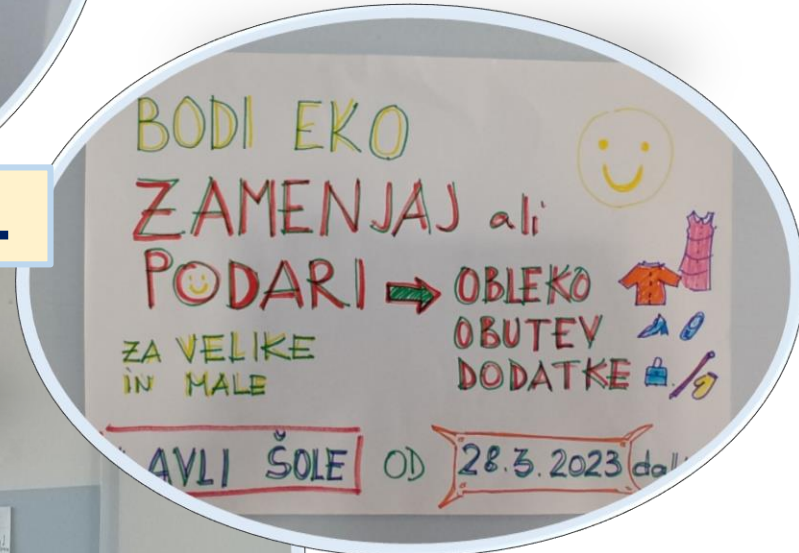 BODI EKO
ZAMENJAJ ali
PODARI → OBLEKO
OBUTEV
DODATKE
ZA VELIKE
IN MALE
AVLI ŠOLE OD 28.3.2023